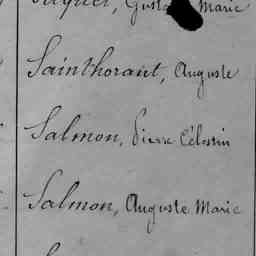 Gustave Marie
Sainthorant, Auguste
Salmon, Pierre Célestin
Salmon, Auguste Marie